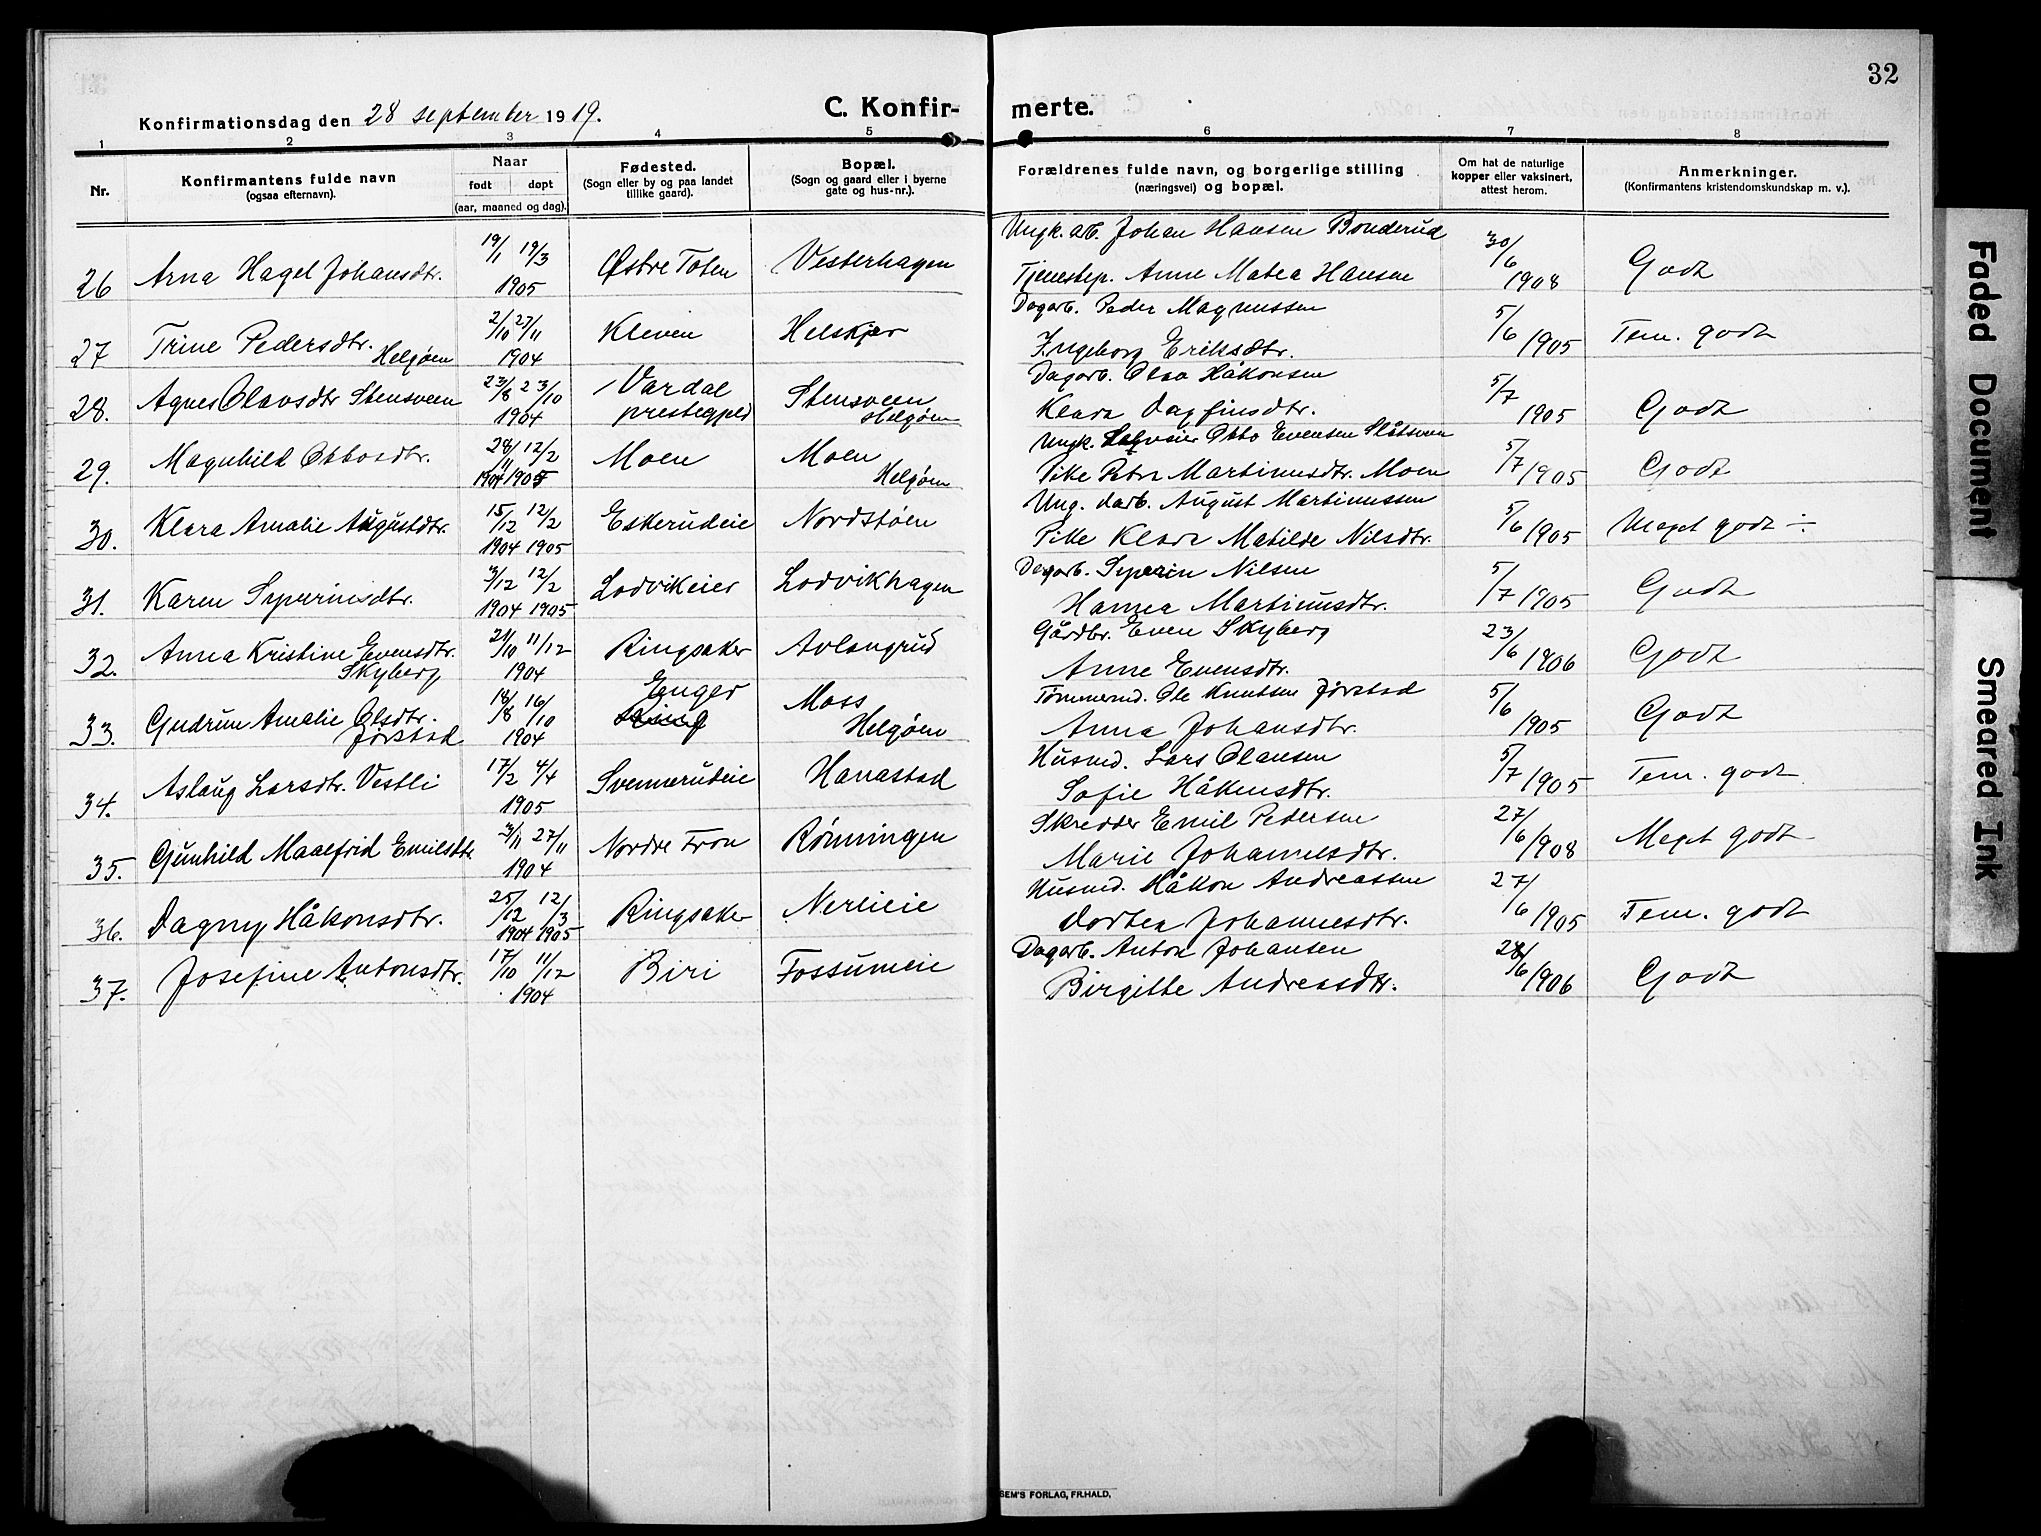 32
Konfirmationsdag den 28 september 1919.
C. Konfir- merte.
1 2 3 4 5 6 7 8
Nr.
Konfirmantens fulde navn
(ogsaa efternavn).
Naar
født døpt
(aar, maaned og dag).
Fødested.
(Sogn eller by og paa landet
tillike gaard).
Bopæl.
(Sogn og gaard eller i byerne
gate og hus-nr.).
Forældrenes fulde navn, og borgerlige stilling
(næringsvei) og bopæl.
Om hat de naturlige
kopper eller vaksinert,
attest herom.
Anmerkninger.
(Konfirmantens kristendomskundskap m. v.).
26 Arna Hagel Johansdtr. 19/1 19/3 1905 Østre Toten Vesterhagen
Ungk. arb. Johan Hansen Bonderud
Tjenestep. Anne Matea Hansen 30/6 1908 Godt
27 Trine Pedersdtr. Helgøen 2/10 27/11 1904 Kleven Helskjær
Dagarb. Peder Magnussen
Ingeborg Eriksdtr. 5/6 1905 Tem. godt
28. Agnes Olavsdtr Stensveen 23/8 23/10 1904 Vardal prestegjeld Stensveen Helgøen
Dagarb. Olav Håkonsen
Klara Dagfinsdtr. 5/7 1905 Godt
29. Magnhild Ottosdtr. 28/11 12/2 1904 1905 Moen Moen Helgøen
Ungk. Otto Evensen
Pike Petra Martinusdtr. Moen 5/7 1905 Godt
30. Klara Amalie Augustdtr. 15/12 12/2 1904 1905 Eskerudeie Nordstøen
Ung. darb. August Martinussen
Pike Klara Matilde Nilsdtr. 5/6 1905 Meget godt ÷
31. Karen Syverinsdtr. 3/12 12/2 1904 1905 Lodvikeier Lodvikhagen
Dagarb. Syverin Nilsen
Hanna Martinusdtr. 5/7 1905 Godt
32. Anna Kristine Evensdtr. Skyberg 21/10 11/12 1904 Ringsaker Avlangrud
Gårdbr. Even Skyberg
Anne Evensdtr. 23/6 1906 Godt
33. Gudrun Amalie Olsdtr. Jørstad 18/8 16/10 1904 Enger Ring Moss Helgøen
Tømmermd. Ole Knutsen Jørstad
Anna Johansdtr. 5/6 1905 Godt
34. Aslaug Larsdtr. Vestli 17/2 4/4 1905 Svennerudeie Hanastad
Husmd. Lars Olausen
Sofie Håkensdtr. 5/7 1905 Tem. godt
35. Gunhild Maalfrid Emilsdtr 3/11 27/11 1904 Nordre Fron Rønningen
Skredder Emil Pedersen
Marie Johannesdtr. 27/6 1908 Meget godt
36. Dagny Håkonsdtr. 25/12 12/3 1904 1905 Ringsaker Nereieie
Husmd. Håkon Andreassen
Dortea Johannesdtr. 27/6 1905 Tem. godt
37. Josefine Antonsdtr. 17/10 11/12 1904 Biri Fossumeie
Dagarb. Anton Johansen
Birgitte Andreasdtr. 28/6 1906 Godt
SEM'S FORLAG, FR.HALD.
Faded Document
Smeared Ink